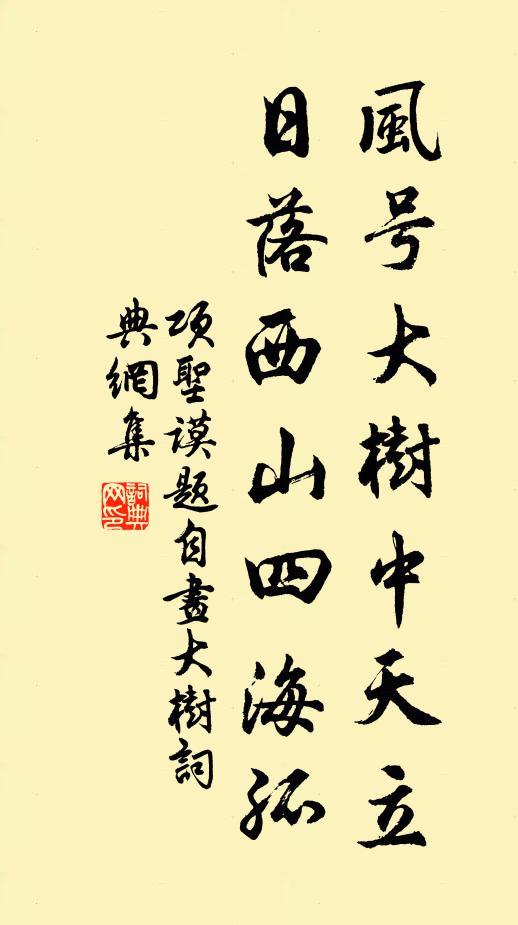 風号大樹中天立
日落西山四海孤
項聖謨題自畫大樹詞
典網集
詞典
网印